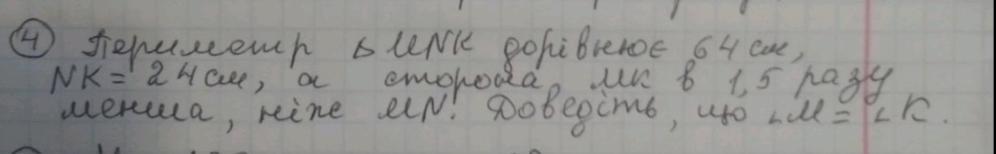 ④ Периметр ΔMNK дорівнює 64 см,
NK = 24 см, а сторона MK в 1,5 разу
менша, ніж MN. Доведіть, що ∠M = ∠K.